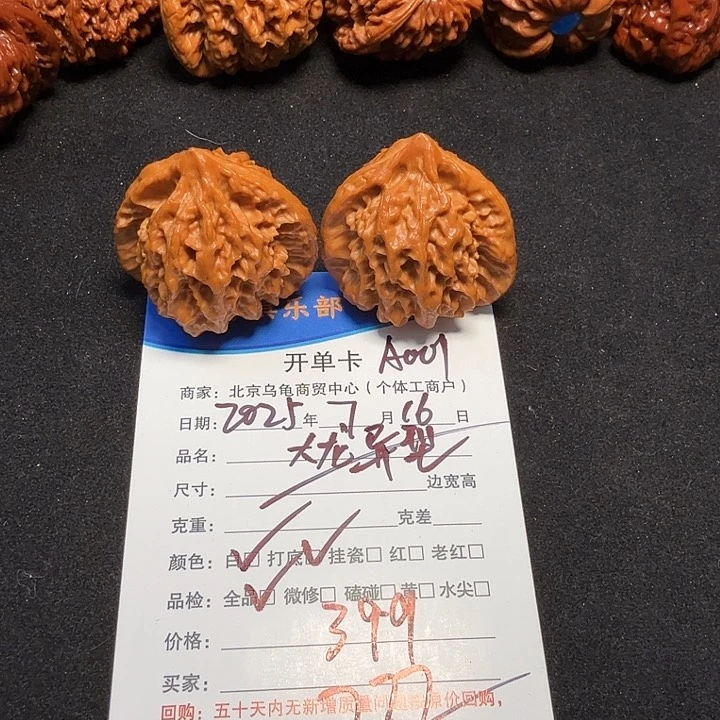 乐部
开单卡 A001
商家：北京乌龟商贸中心（个体工商户）
日期：2025年7月16日
品名：异型
尺寸：边宽高
克重：克差
颜色：白□ 打底□ 挂瓷□ 红□ 老红□
品检：全品□ 微修□ 磕碰□ 黄□ 水尖□
价格：399
买家：
回购：五十天内无新增质量问题原价回购，